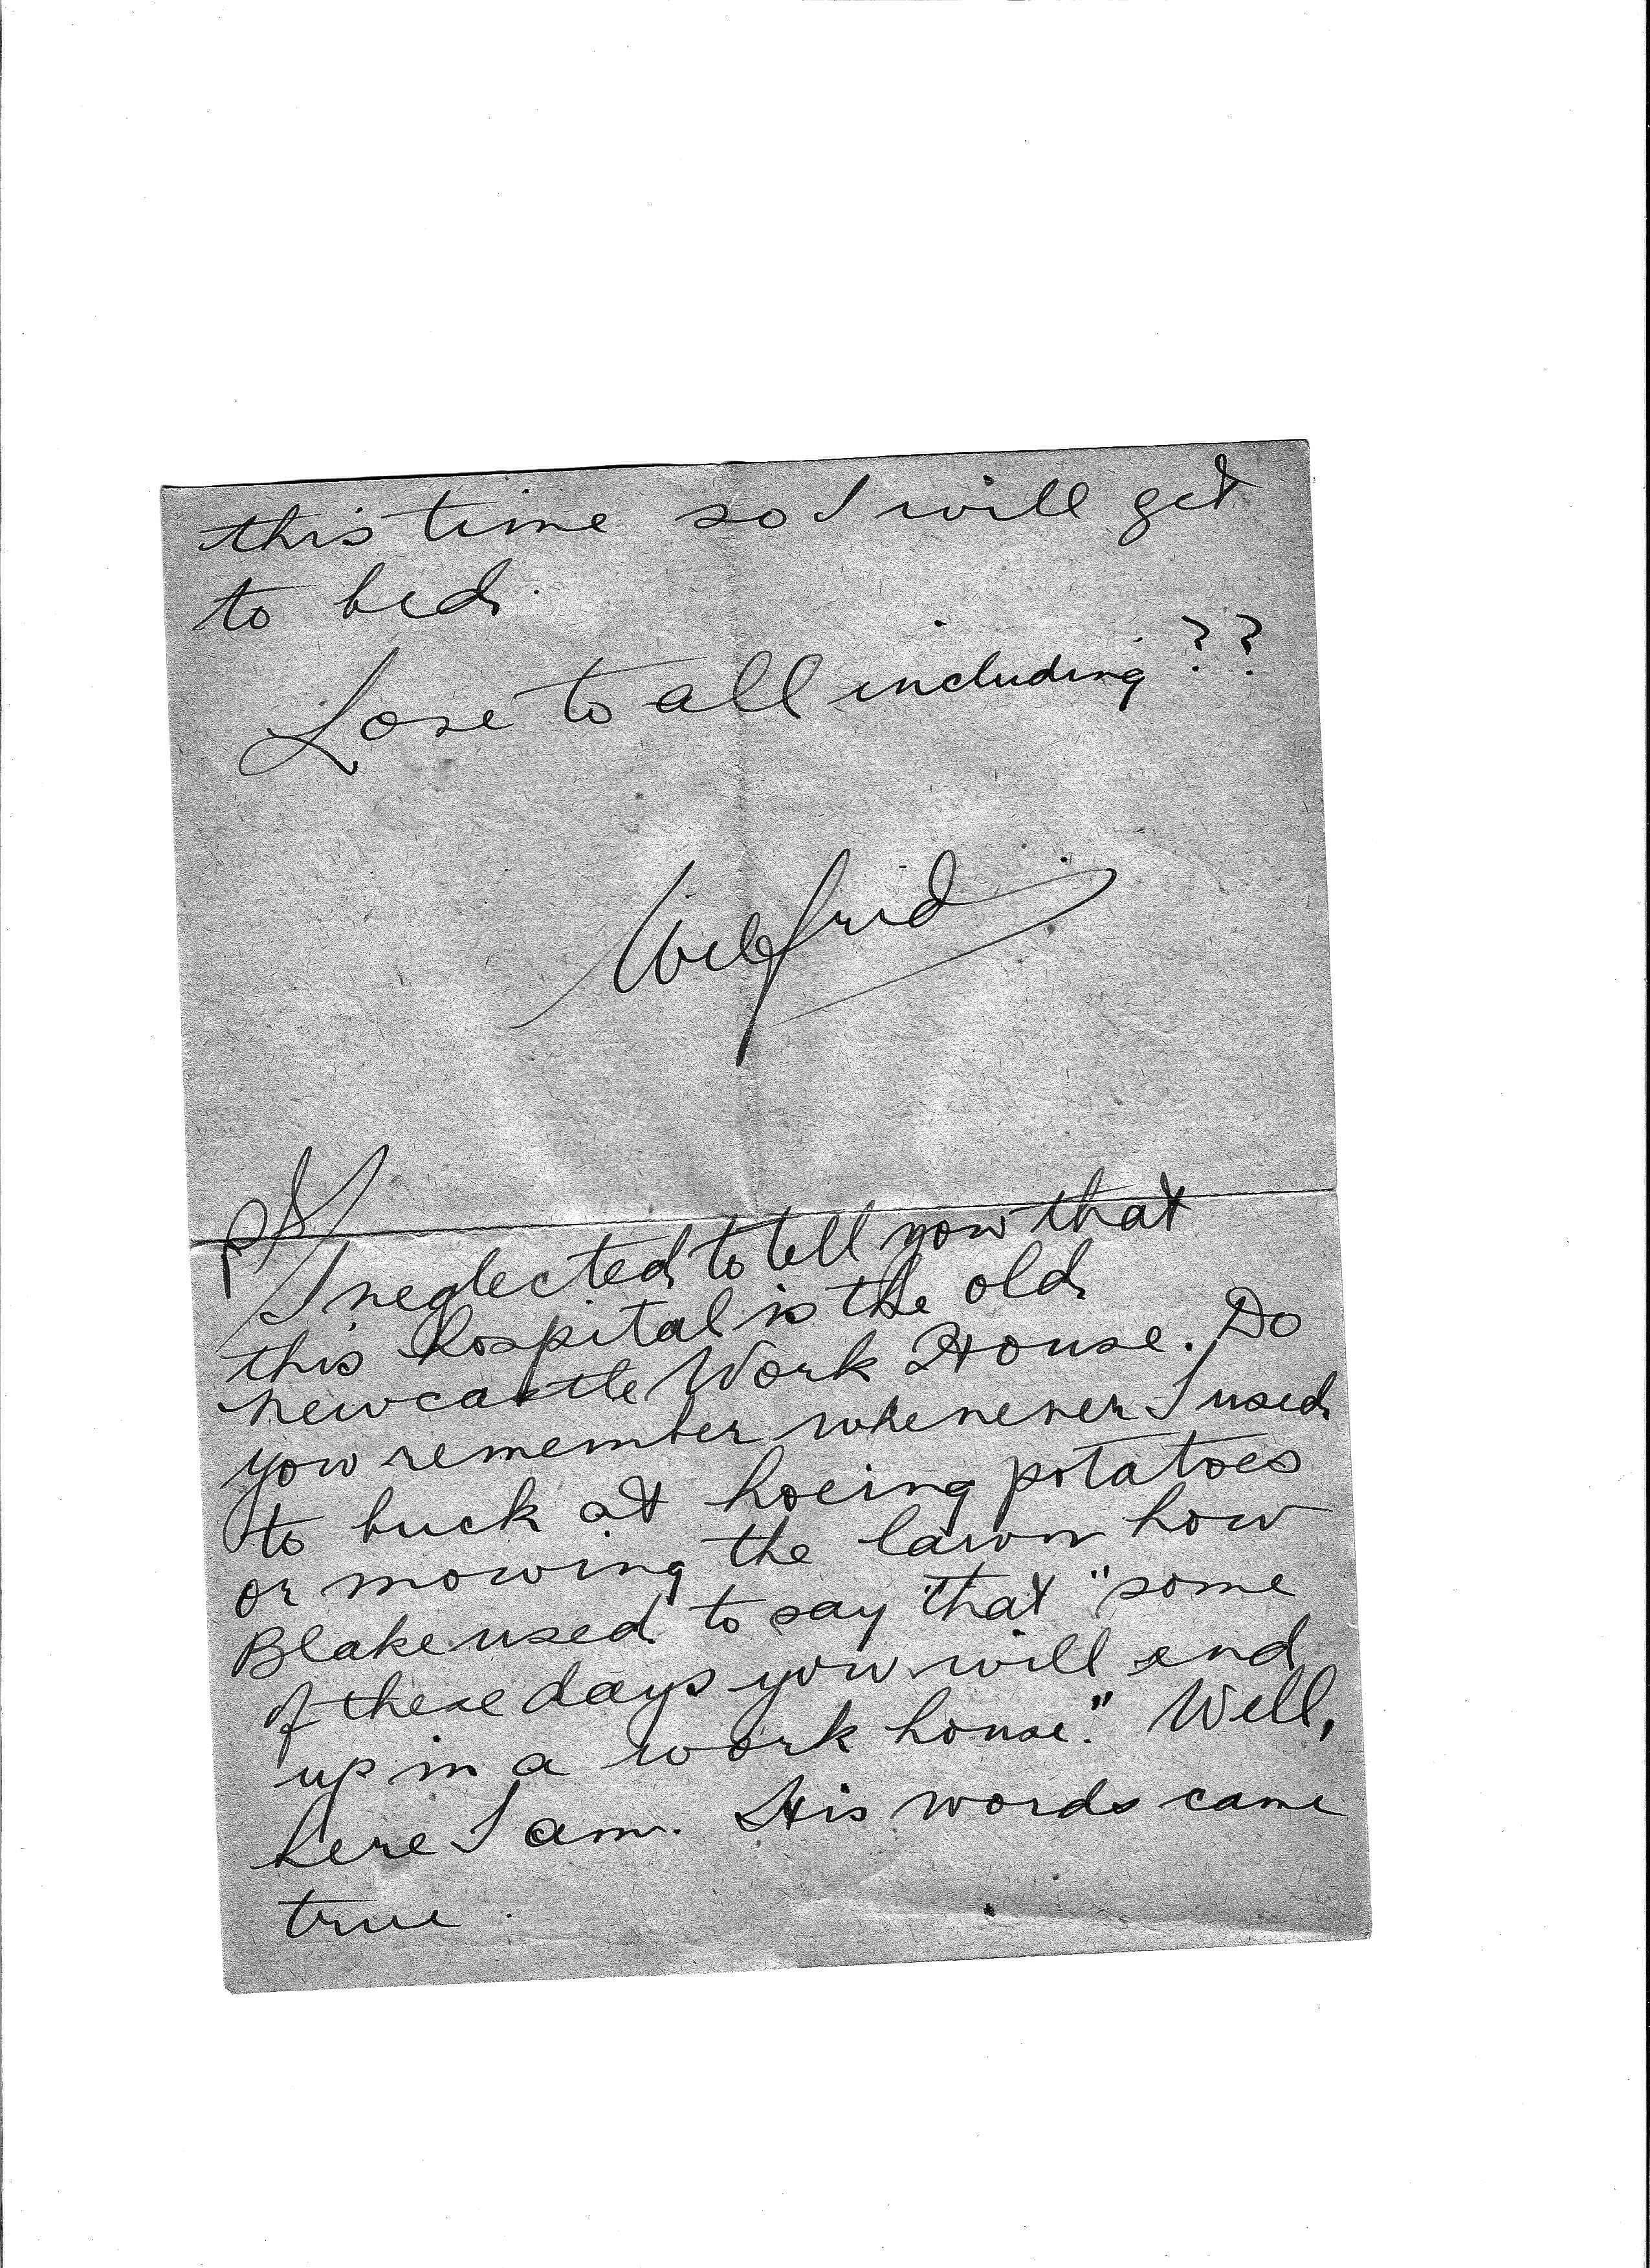 this time so I will get
to bed.
Love to all including ??
Wilfrid
PS
I neglected to tell you that
this hospital is the old
newcastle Work House. Do
you remember whenever I used
to buck at hoeing potatoes
or mowing the lawn how
Blake used to say that "some
of these days you will end
up in a work house." Well,
here I am. His words came
true.